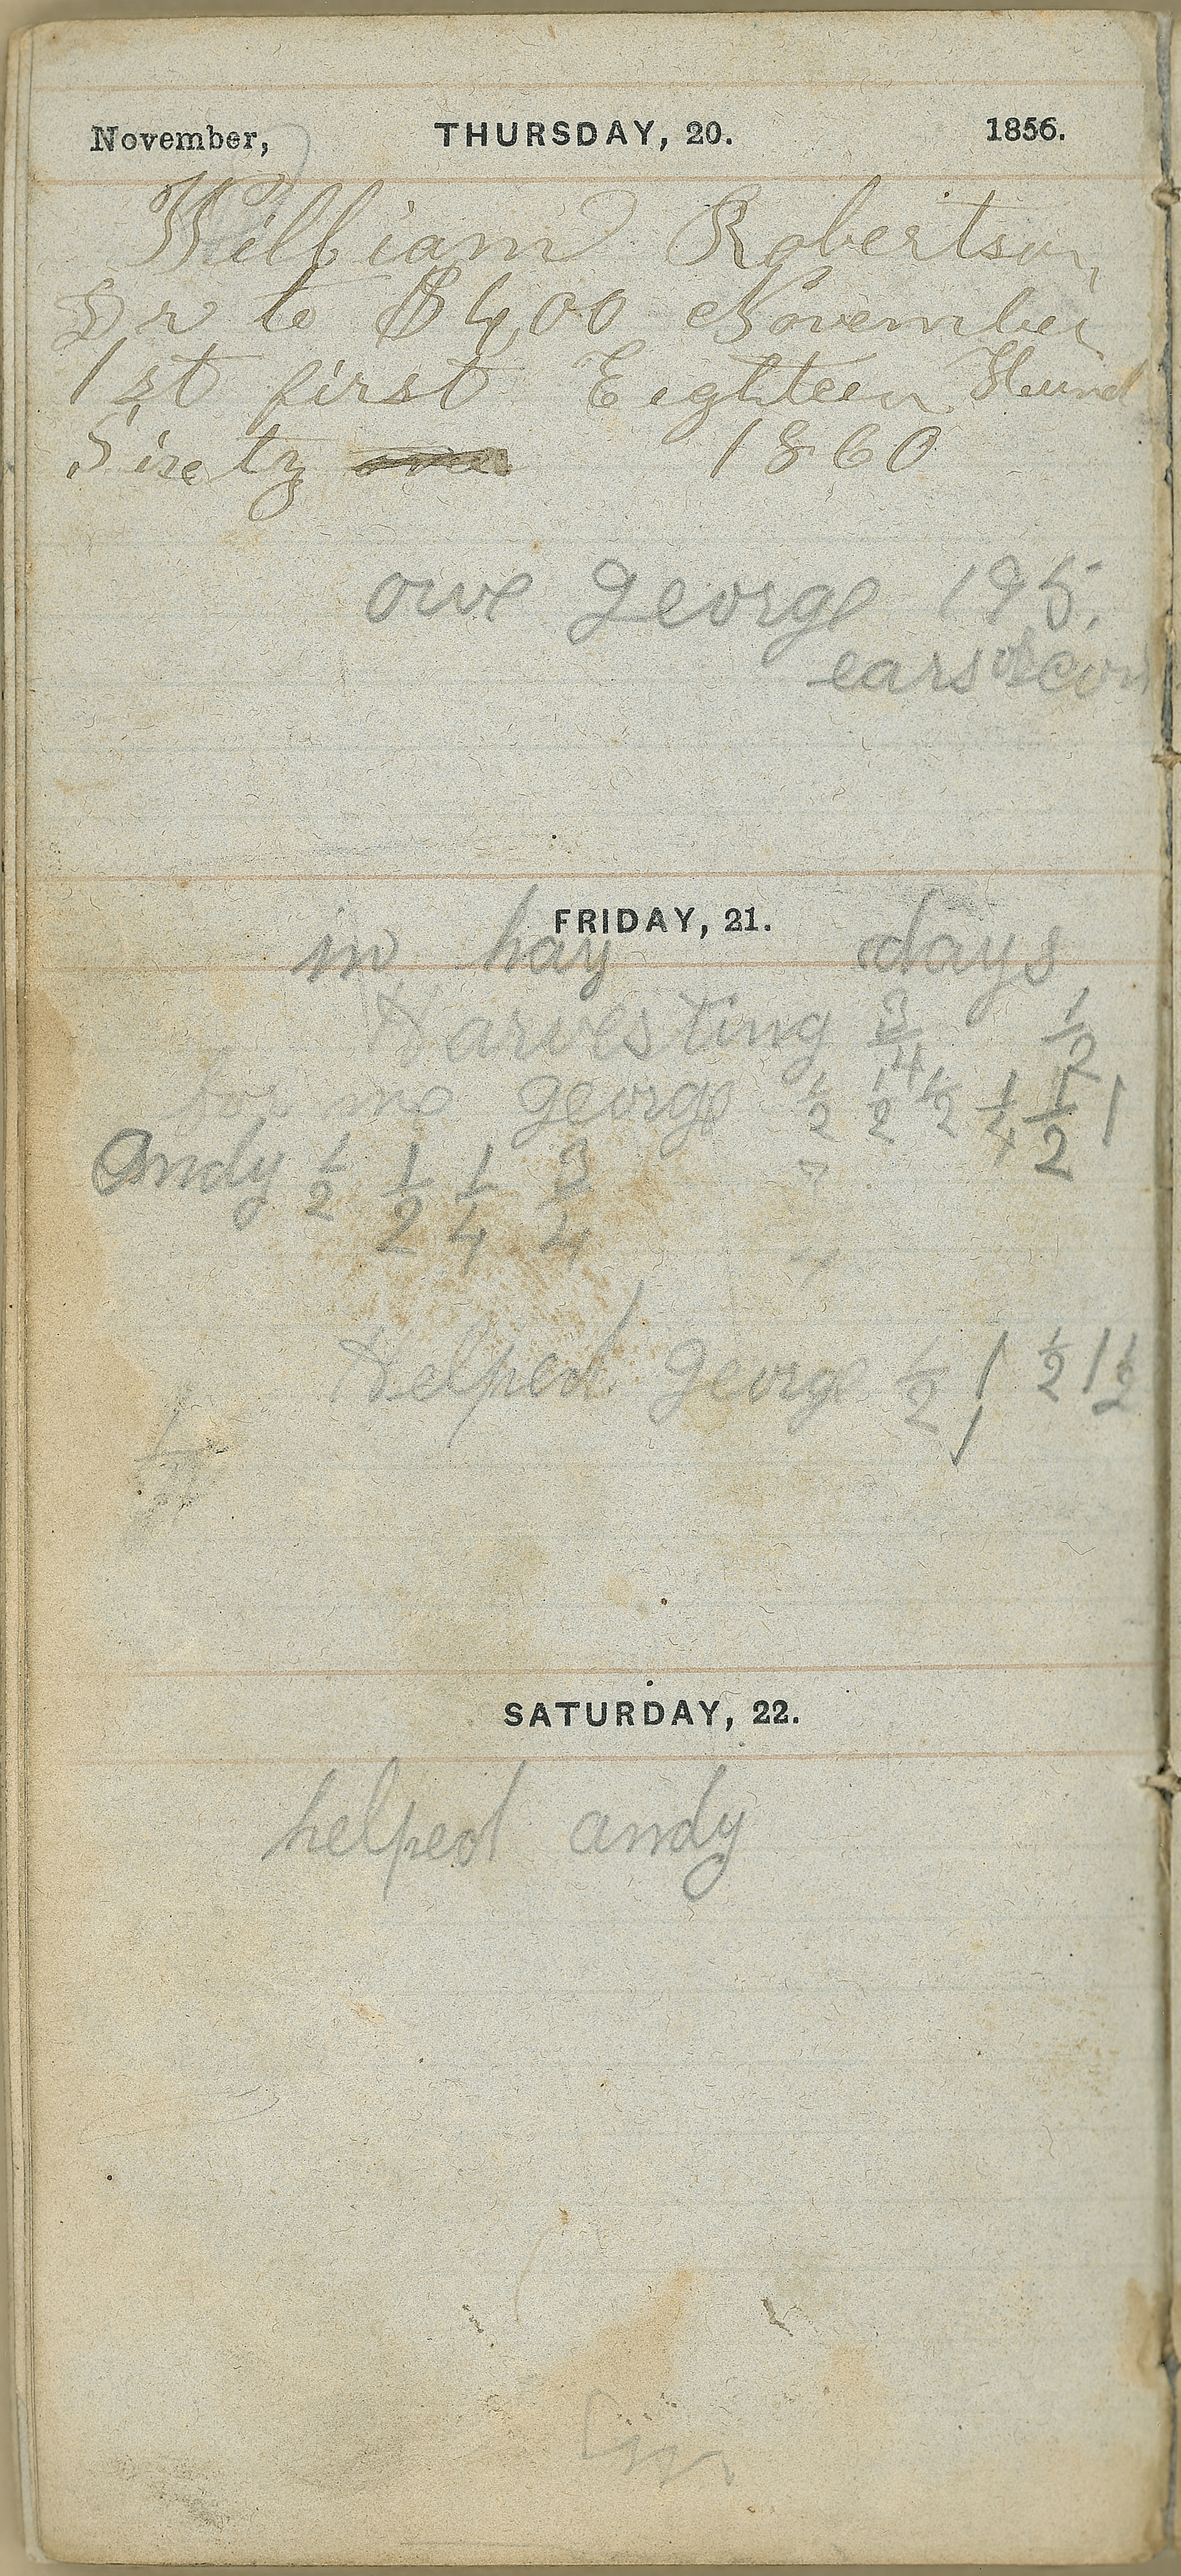 November, THURSDAY, 20. 1856.
William Robertson
Dr to $400 November
1st first Eighteen Hund
Sixty one 1860
owe george 195.
ears of corn
FRIDAY, 21.
in hay days
Harvesting 3/4 1/2
for me george 1/2 1/2 1/2 1/4 1/2 1
Andy 1/2 1/2 1/4 3/4
Helped george 1/2 1 1/2 1 1/2
1
SATURDAY, 22.
helped andy